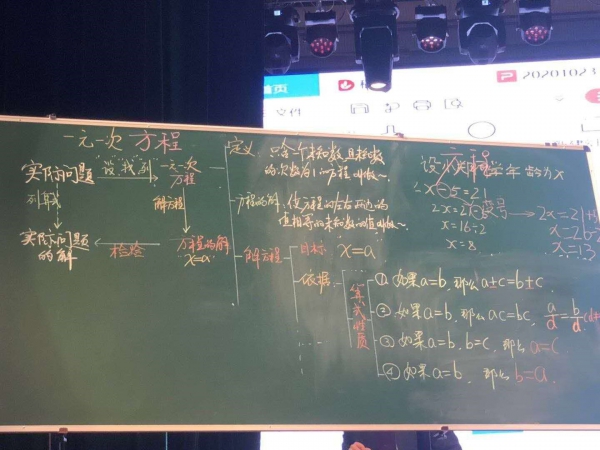 首页
20201023
文件
一元一次方程
实际问题
设 找 列
一元一次
方程
列算
解方程
实际问题
的解
检验
方程的解
x=a
定义
只含一个未知数,且未知数
的次数为1的方程叫做~
方程的解
使方程的左右两边的
值相等的未知数的值叫做~
解方程
目标
x=a
依据
等式性质
① 如果a=b,那么a±c=b±c.
② 如果a=b,那么ac=bc,
③ 如果a=b,b=c,那么a=c.
④ 如果a=b,那么b=a.
设
同学年龄为x
2x-5=21
x=16÷2
x=8
x=13